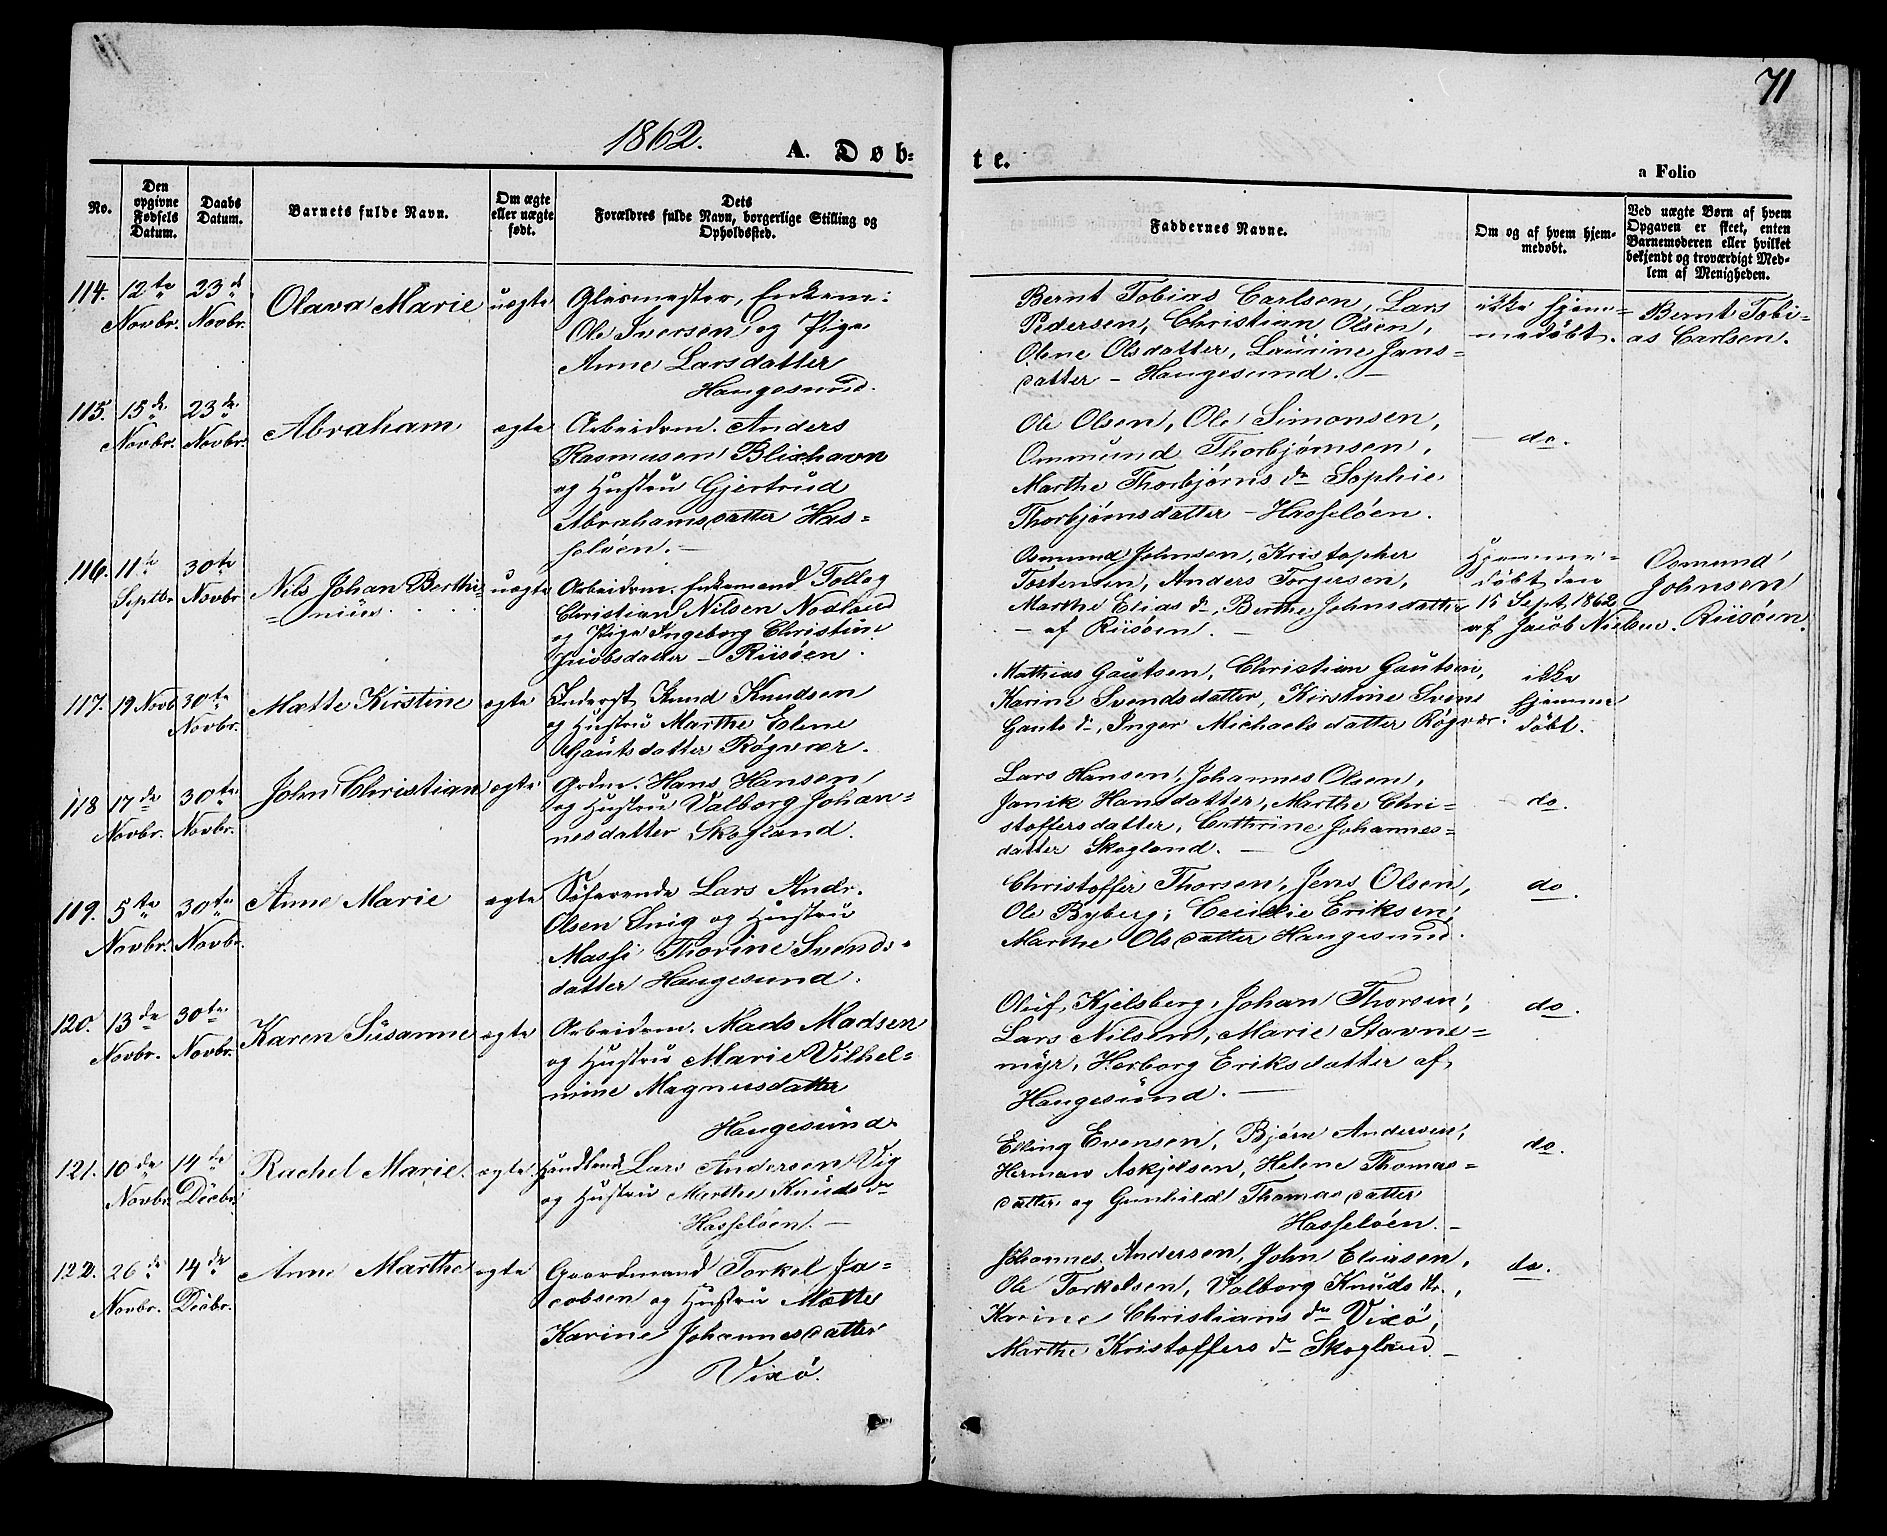 71
1862.
A. Døb=
te.
a Folio
No.
Den opgivne Fødsels Datum.
Daabs Datum.
Barnets fulde Navn.
Om ægte eller uægte født.
Dets Forældres fulde Navn, borgerlige Stilling og Opholdssted.
Faddernes Navne.
Om og af hvem hjemmedøbt.
Ved uægte Børn af hvem Opgaven er skeet, enten Barnemoderen eller hvilket bekjendt og troværdigt Medlem af Menigheden.
114. 12te Novbr. 23de Novbr. Olava Marie uægte
Glasmester, Enkem:
Ole Iversen og Pige
Anne Larsdatter
Haugesund.
Bernt Tobias Carlsen, Lars
Pedersen, Christian Olsen,
Olene Olsdatter, Laurine Jans=
datter - Haugesund. -
ikke hjem=
medøbt.
Bernt Tobi=
as Carlsen.
115. 15de Novbr. 23de Novbr. Abraham ægte
Arbeidsm. Anders
Rasmusen Blixhavn
og Hustru Gjertrud
Abrahamsdatter Has=
seløen. -
Ole Olsen, Ole Simonsen,
Ommund Thorbjørnsen,
Marthe Thorbjørns dr Sophie
Thorbjørnsdatter - Hasseløen.
- do.
116. 11te Septbr 30te Novbr Nils Johan Berthi=
=nius uægte
Arbeidsm. Enkemand Tollag
Christian Nilsen Nodland
og Pige Ingeborg Christine
Jacobsdatter - Riisøen.
Osmund Johnsen, Kristopher
Tostensen, Anders Torgersen,
Marthe Elias dr, Berthe Johnsdatter
- af Riisøen. -
Hjemme=
døbt den
15 Sept. 1862
af Jacob Nielsen.
Osmund
Johnsen
Riisøen.
117. 19 Novb 30te Novbr. Mætte Kirstine ægte
Inderst Knud Knudsen
og Hustru Marthe Elene
Gautsdatter Røgvær.
Mathias Gautsen, Christian Gautsen,
Karine Svendsdatter, Kirstine Svens
Gauts dr, Inger Michaelsdatter Røgvær.
ikke
hjemme
døbt.
118 17de Novbr. 30te Novbr. John Christian ægte
Grdm. Hans Hansen
og Hustru Valborg Johan=
nesdatter Skogland.
Lars Hansen, Johannes Olsen,
Janik Hansdatter, Marthe Chri=
stoffersdatter, Cathrine Johannes=
datter Skogland. -
- do.
119. 5te Novbr. 30te Novbr. Anne Marie ægte
Søfarende Lars Andr.
Olsen Snig og Hustru
Massi Thorine Svends=
datter Haugesund.
Christoffer Thorsen, Jens Olsen,
Ole Ryberg, Cecielie Eriksen,
Marthe Olsdatter Haugesund.
do.
120. 13de Novbr. 30te Novbr. Karen Susanne ægte
Arbeidsm. Mads Madsen
og Hustru Marie Vilhel=
mine Magnusdatter
Haugesund.
Oluf Kjelsberg, Johan Thorsen,
Lars Nilsen, Marie Stavne=
myr, Herborg Eriksdatter af
Haugesund. -
do.
121. 10de Novbr. 14de Decbr. Rachel Marie. ægte
Handlende Lars Andersen Vig
og Hustru Marthe Knuds dr
Hasseløen. -
Elling Evensen, Bjørn Andersen,
Herman Askjelsen, Helene Thomas=
datter og Gunhild Thomasdatter
Hasseløen. -
do.
122. 26de Novbr. 14de Decbr. Anne Marthe ægte
Gaardmand Torkel Ja=
cobsen og Hustru Mætte
Karine Johannesdatter
Vixø.
Johannes Andersen, John Eliasen,
Ole Torkelsen, Valborg Knuds dr.,
Karine Christians dr Vixø,
Marthe Kristoffers dr Skogland. -
do.